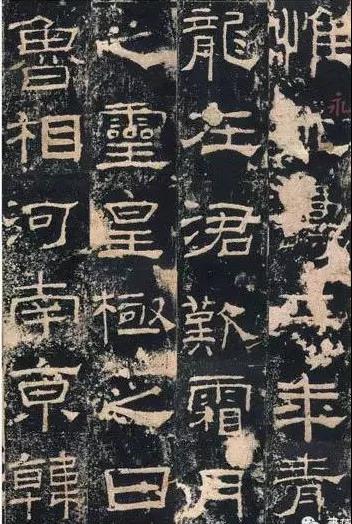 惟永壽年青
龍在涒歎霜月
之靈皇極之日
魯相河南京韓